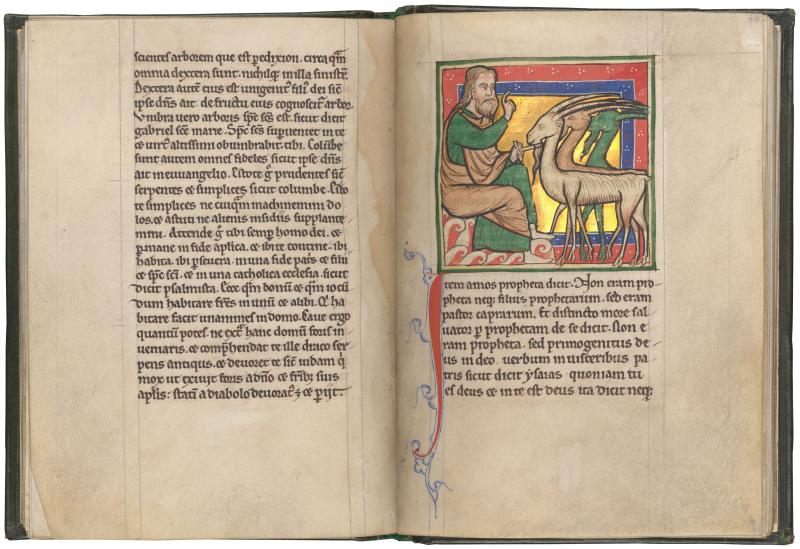 scientes arborem que est peridixion. circa qͣm
omnia dextera sunt. nichilqꝫ in illa sinistr̄.
Dextera autē eius est unigenitꝰ filiꝰ dei sic̄
ipse dn̄s ait. de fructu eius cognoscitᷣ arbor.
Vmbra uero arboris sp̄c sc̄s est. sicut dicit
gabriel sc̄e marie. Sp̄c sc̄s superueniet in te
⁊ uirtꝰ altissimi obumbrabit tibi. Colūbe
sunt autem omnes fideles sicut ipse dn̄s
ait in euuangelio. Estote g̊ prudentes sic̄
serpentes ⁊ simplices sicut columbe. Esto
te simplices ne cuiqͣm machinemini do
los. ⁊ astuti ne alienis insidiis supplante
mini. Attende g̊ tibi semꝑ homo dei. ⁊
ꝑmane in fide apl̄ica. ⁊ ibi te contine. ibi
habita. ibi ꝑseuera. in una fide patris ⁊ filii
⁊ sp̄c sc̄i. ⁊ in una catholica ecclesia. sicut
dicit psalmista. Ecce qͣm bonū ⁊ qͣm iocū
dum habitare fr̄es in unū ⁊ alibi. Qi ha
bitare facit unanimes in domo. Caue ergo
quantū potes. ne extͣ hanc domū foris in
ueniaris. ⁊ compͬhendat te ille draco ser
pens antiquꝰ. ⁊ deuoret te sic̄ iudam qi
mox ut exiuit foris a dn̄o ⁊ fr̄ibꝫ suis
apl̄is: statī a diabolo deuoratꝰ ē ⁊ ꝑiit.
Item amos propheta dicit. Non eram pro
pheta neqꝫ filius prophetarum. sed eram
pastor caprarum. Et distincto more sal
uator ꝑ prophetam de se dicit. Non e
ram propheta. sed primogenitus de
us in deo. uerbum in uisceribus pa
tris sicut dicit ysaias quoniam tu
es deus ⁊ in te est deus ita dicit neqꝫ